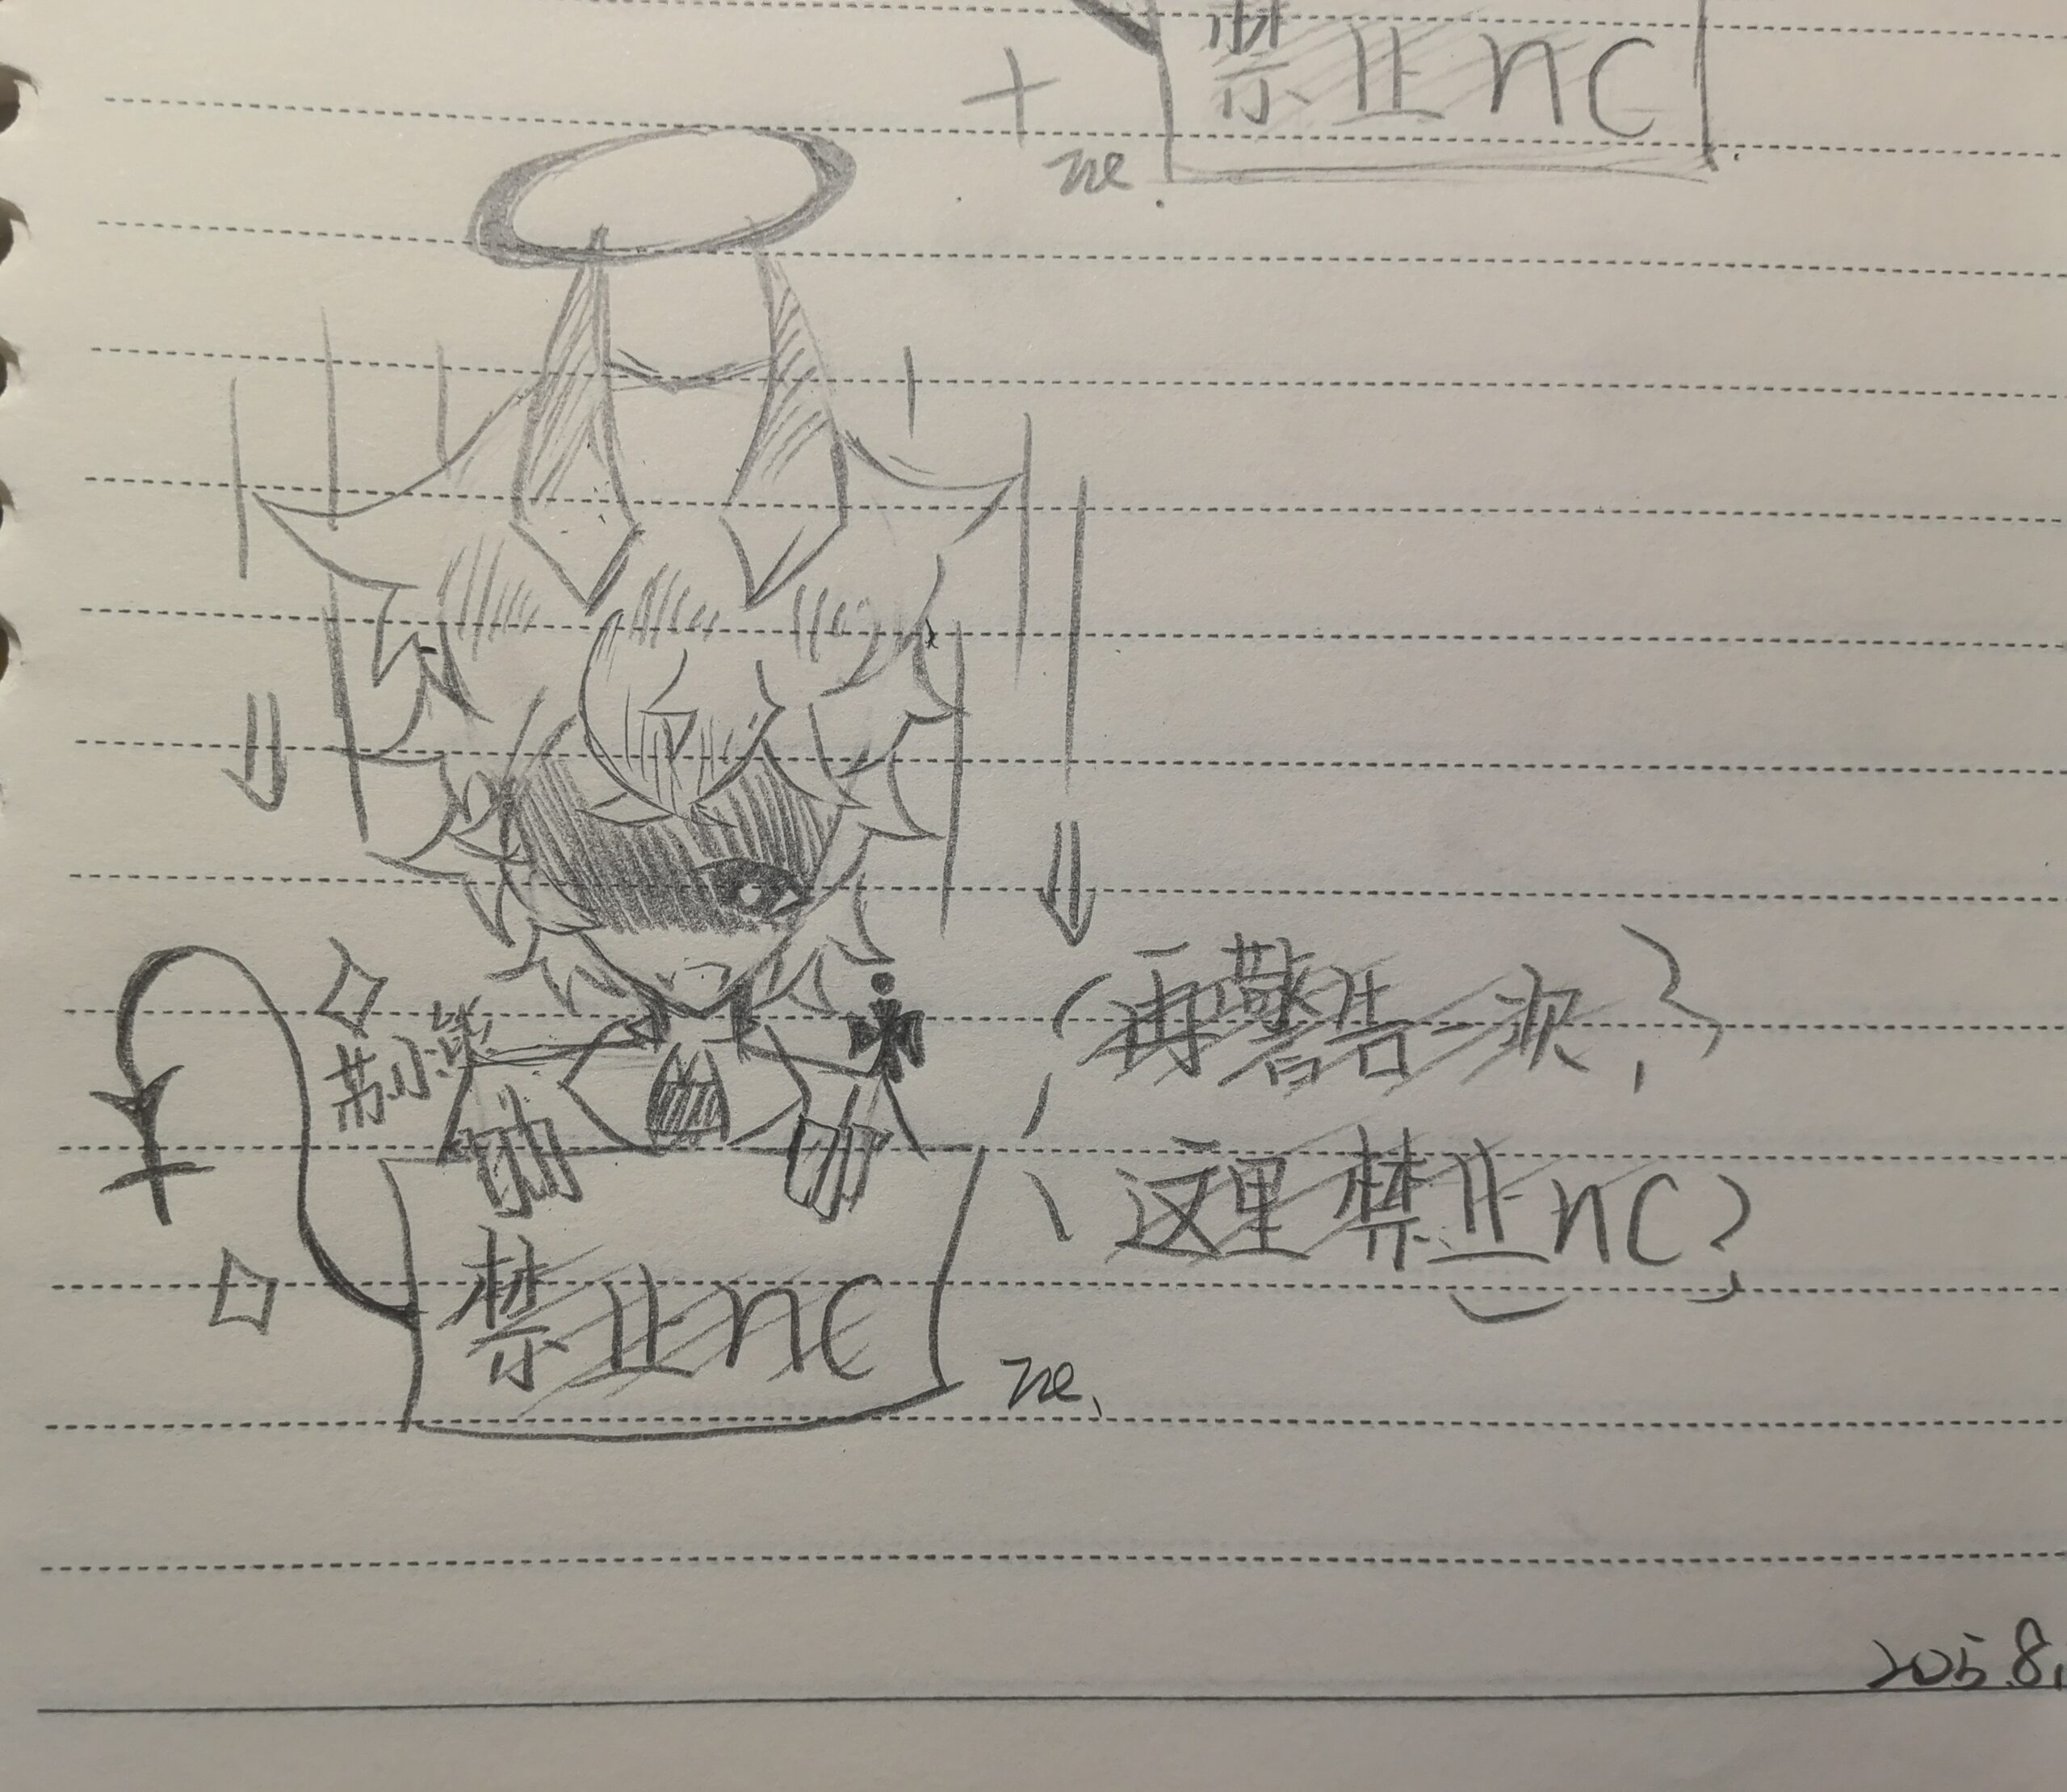 禁止nc
ne
再警告一次,
这里禁止nc,
禁止nc
ne.